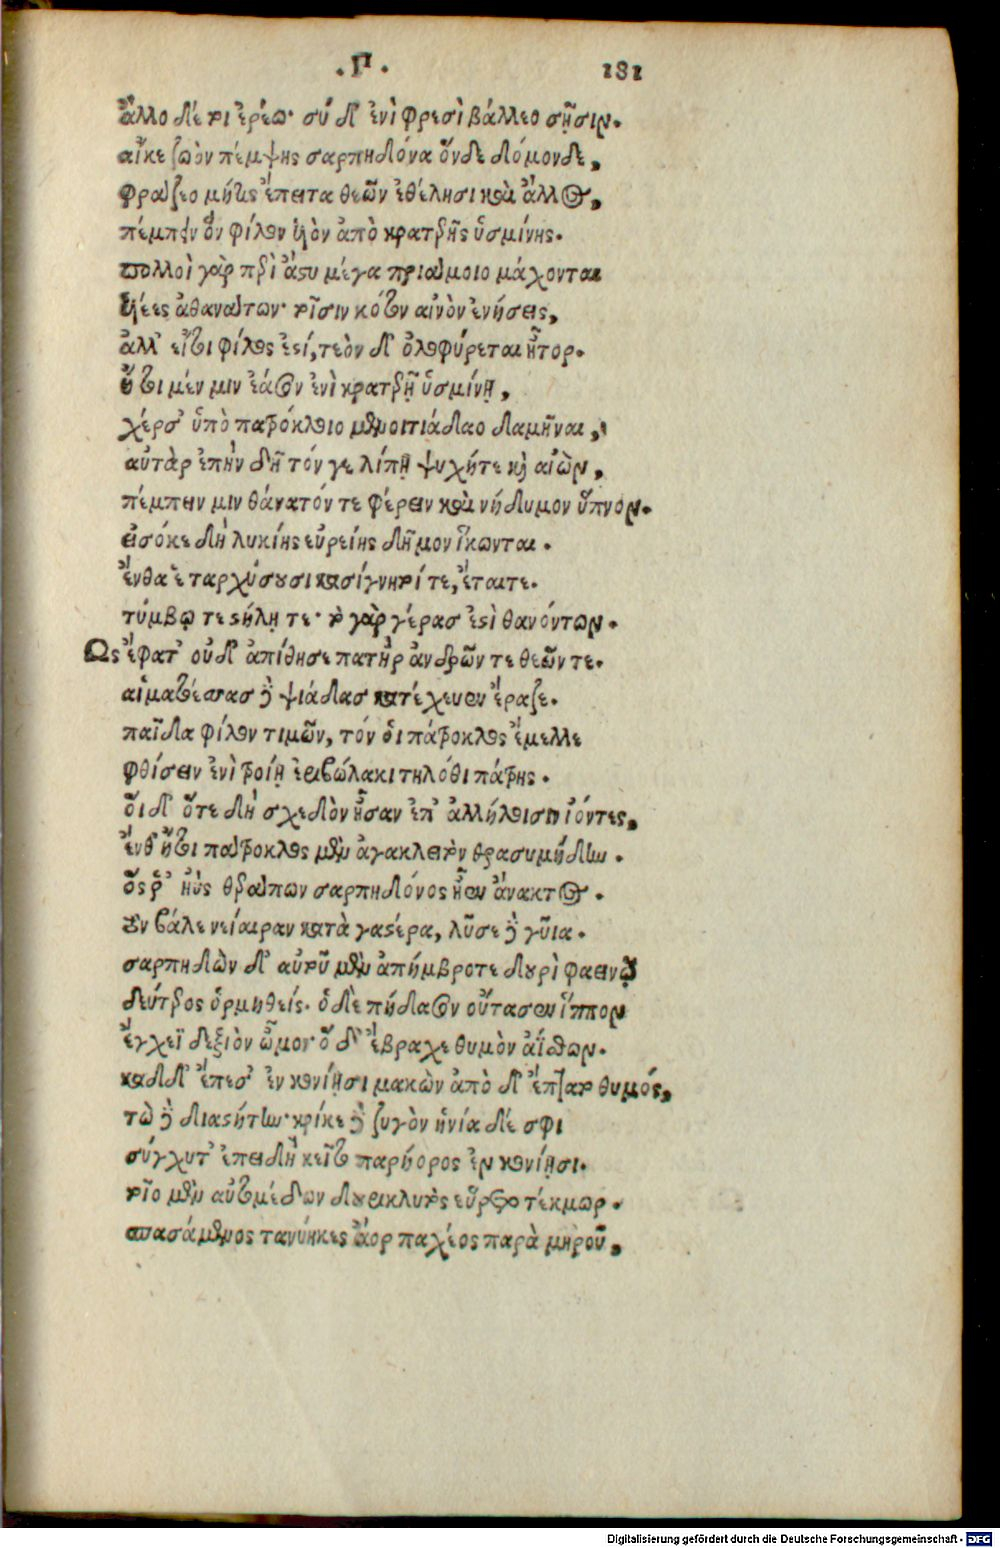 .Π. 181
ἄλλο δέ τοι ἐρέω· σύ δ' ἐνὶ φρεσὶ βάλλεο σῇσιν.
αἴκε ζωὸν πέμψῃς σαρπηδόνα ὅνδε δόμονδε,
φράζεο μήτις ἔπειτα θεῶν ἐθέλησι καὶ ἄλλος,
πέμπειν ὃν φίλον υἱὸν ἀπὸ κρατερῆς ὑσμίνης.
πολλοὶ γὰρ περὶ ἄστυ μέγα πριάμοιο μάχονται
υἱέες ἀθανάτων· τοῖσιν κότον αἰνὸν ἐνήσεις,
ἀλλ' εἴτοι φίλος ἐστί, τεὸν δ' ὀλοφύρεται ἦτορ.
ἤτοι μέν μιν ἔασον ἐνὶ κρατερῇ ὑσμίνῃ,
χέρσ' ὑπὸ πατρόκλοιο μενοιτιάδαο δαμῆναι,
αὐτὰρ ἐπὴν δὴ τόν γε λίπῃ ψυχή τε καὶ αἰὼν,
πέμπειν μιν θάνατόν τε φέρειν καὶ νήδυμον ὕπνον.
εἰσόκε δὴ λυκίης εὐρείης δῆμον ἵκωνται.
ἔνθα ἑ ταρχύσουσι κασίγνητοί τε, ἔται τε.
τύμβῳ τε στήλῃ τε· τὸ γὰρ γέρασ ἐστὶ θανόντων.
Ὣς ἔφατ' οὐδ' ἀπίθησε πατὴρ ἀνδρῶν τε θεῶν τε.
αἱματοέσσας δὲ ψιάδας κατέχευεν ἔραζε.
παῖδα φίλον τιμῶν, τόν ὁι πάτροκλος ἔμελλε
φθίσειν ἐνὶ τροίῃ ἐριβώλακι τηλόθι πάτρης.
ὅι δ' ὅτε δὴ σχεδὸν ἦσαν ἐπ' ἀλλήλοισιν ἰόντες,
ἔνθ' ἤτοι πάτροκλος μὲν ἀγακλειτὸν θρασυμήδην.
ὅς ῥ' ἠῢς θεράπων σαρπηδόνος ἦεν ἄνακτος.
τὸν βάλε νείαιραν κατὰ γαστέρα, λῦσε δὲ γυῖα.
σαρπηδὼν δ' αὐτοῦ μὲν ἀπήμβροτε δουρὶ φαεινῷ
δεύτερος ὁρμηθείς. ὁ δὲ πήδασον οὔτασεν ἵππον
ἔγχεϊ δεξιὸν ὦμον· ὅ δ' ἔβραχε θυμὸν ἀΐσθων.
καδδ' ἔπεσ' ἐν κονίῃσι μακὼν ἀπὸ δ' ἔπτατο θυμός,
τὼ δὲ διαστήτην· κρίκε δὲ ζυγὸν ἡνία δέ σφι
σύγχυτ' ἐπειδὴ κεῖτο παρήορος ἐν κονίῃσι.
τοῖο μὲν αὐτομέδων δουρικλυτὸς εὕρετο τέκμωρ.
σπασάμενος τανύηκες ἄορ παχέος παρὰ μηροῦ,
Digitalisierung gefördert durch die Deutsche Forschungsgemeinschaft - DFG